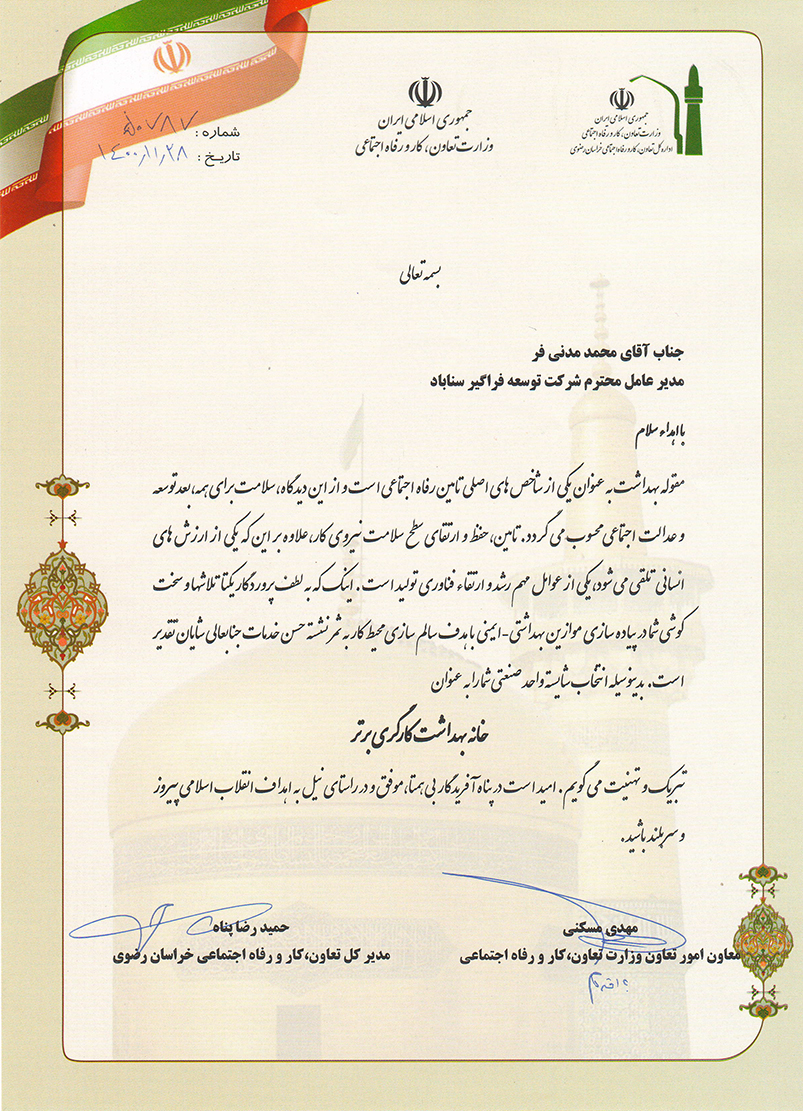 جمهوری اسلامی ایران
وزارت تعاون، کار و رفاه اجتماعی
اداره کل تعاون، کار و رفاه اجتماعی خراسان رضوی
جمهوری اسلامی ایران
وزارت تعاون، کار و رفاه اجتماعی
شماره :
تاریخ : ۱۴۰۰/۱۱/۲۸
بسمه تعالی
جناب آقای محمد مدنی فر
مدیر عامل محترم شرکت توسعه فراگیر سناباد
با اهداء سلام
مقوله بهداشت به عنوان یکی از شاخص های اصلی تامین رفاه اجتماعی است و از این دیدگاه، سلامت برای همه، بعد توسعه
و عدالت اجتماعی محسوب می گردد. تامین، حفظ و ارتقای سطح سلامت نیروی کار، علاوه بر این که یکی از ارزش های
انسانی تلقی می شود، یکی از عوامل مهم رشد و ارتقاء فناوری تولید است. اینک که به لطف پروردگار یکتا تلاشها و سخت
کوشی شما در پیاده سازی موازین بهداشتی-ایمنی با هدف سالم سازی محیط کار به ثمر نشسته حسن خدمات جنابعالی شایان تقدیر
است. بدینوسیله انتخاب شایسته واحد صنعتی شما را به عنوان
خانه بهداشت کارگری برتر
تبریک و تهنیت می گویم. امید است در پناه آفریدگار بی همتا، موفق و در راستای نیل به اهداف انقلاب اسلامی پیروز
و سربلند باشید.
مهدی مسکنی
معاون امور تعاون وزارت تعاون،کار و رفاه اجتماعی
حمید رضا پناه
مدیر کل تعاون،کار و رفاه اجتماعی خراسان رضوی